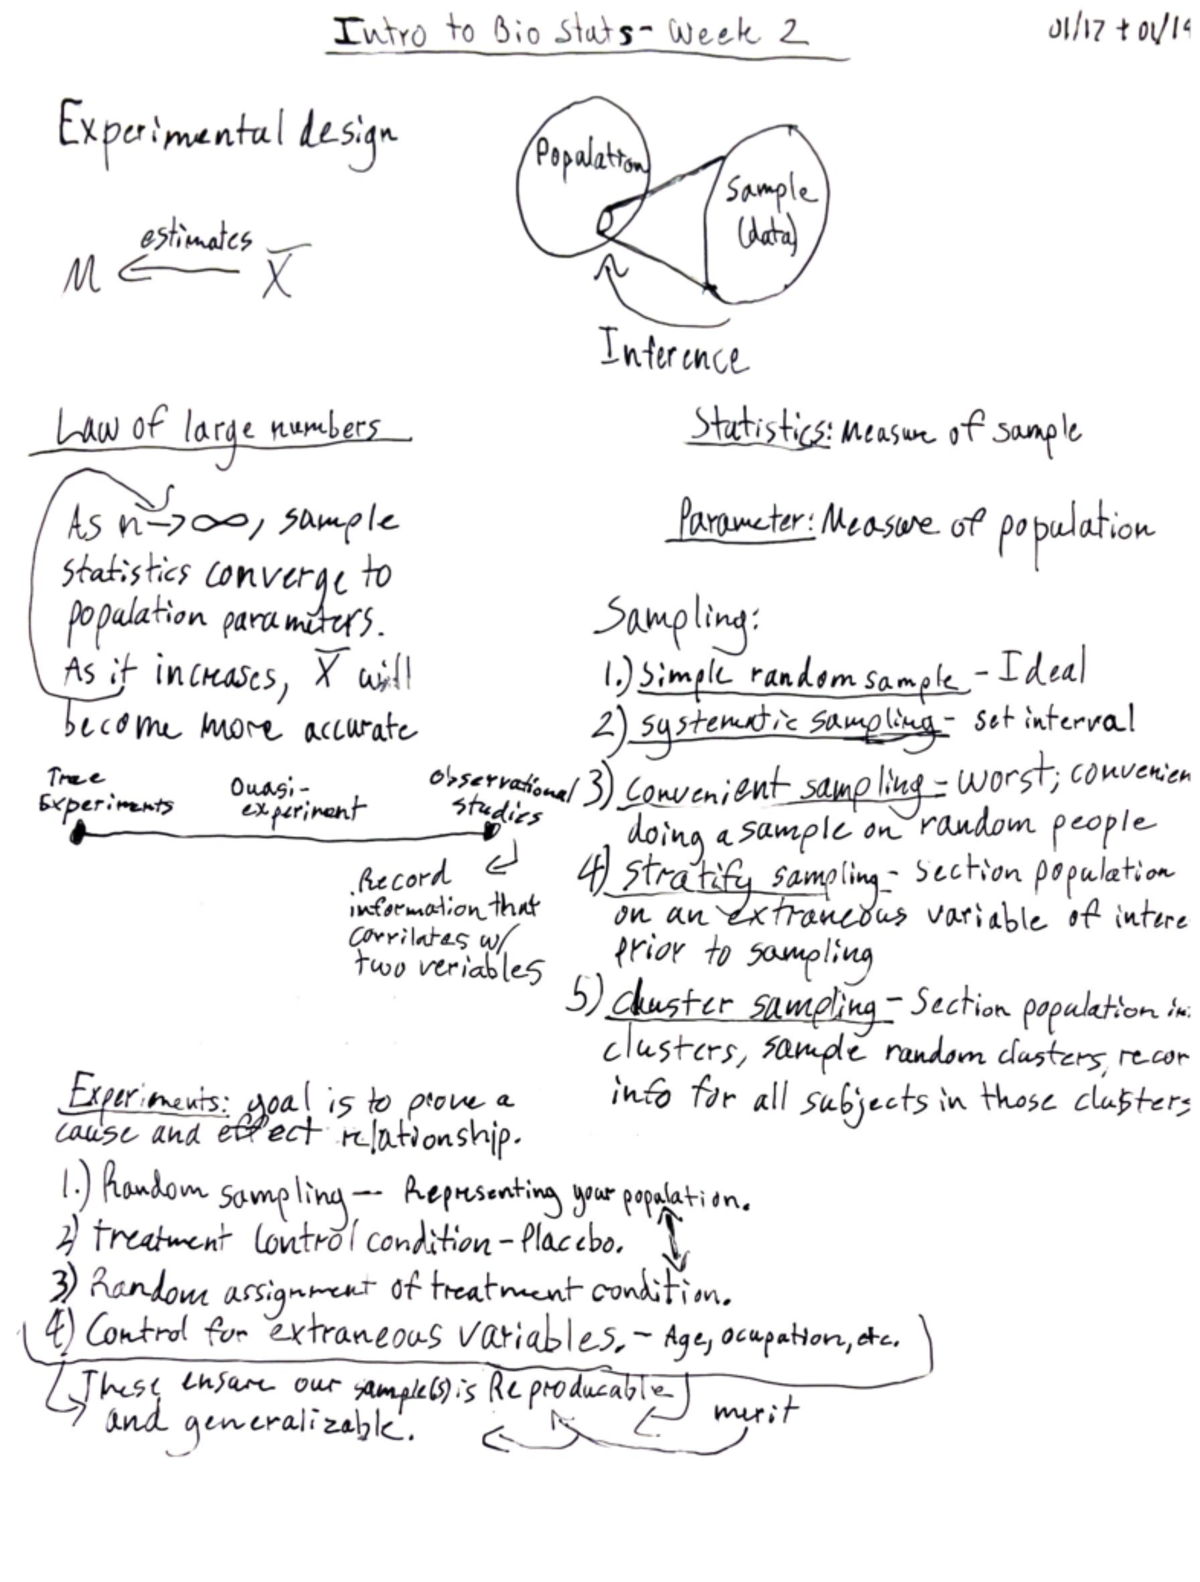 Intro to Bio Stats - Week 2
01/17 + 01/19
Experimental design
Population
Sample
(data)
Inference
M estimates X̄
Law of large numbers
As n→∞, sample
statistics converge to
population parameters.
As it increases, X̄ will
become more accurate
Statistics: Measure of sample
Parameter: Measure of population
Sampling:
1.) Simple random sample - Ideal
2) systematic sampling - set interval
3) convenient sampling - worst; convenien
doing a sample on random people
4) Stratify sampling - Section population
on an extraneous variable of intere
prior to sampling
5) cluster sampling - Section population in
clusters, sample random clusters, recor
info for all subjects in those clusters
True
Experiments
Quasi-
experiment
Observational
studies
Record
information that
corrilates w/
two veriables
Experiments: goal is to prove a
cause and effect relationship.
1.) Random sampling — Representing your population.
2) treatment Control condition - Placebo.
3) Random assignment of treatment condition.
4) Control for extraneous variables. - Age, ocupation, etc.
These ensure our sample(s) is Reproducable
and generalizable.
merit